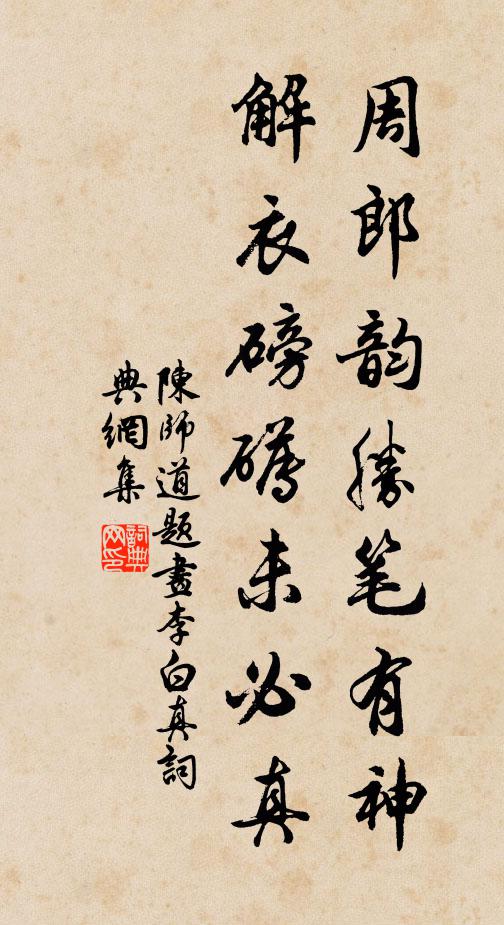 周郎韵勝笔有神
解衣磅礴未必真
陳師道題畫李白真詞
典網集
詞典網印